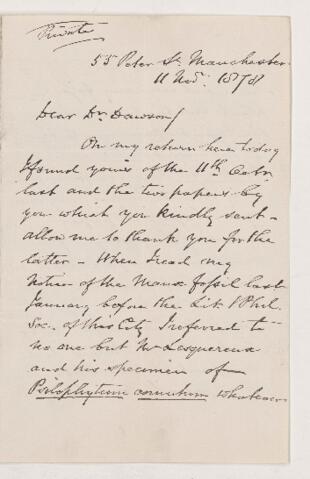 Private
55 Peter St. Manchester
11 Novr. 1878
Dear Dr. Dawson
On my return here today
I found yours of the 11th Octr
last and the two papers by
you which you kindly sent -
allow me to thank you for the
latter - When I read my
Notice of the Manx fossil last
January before the Lit & Phil.
Soc. of this City I referred to
no one but Mr Lesquereux
and his specimen of
Psilophytum cornutum whatever